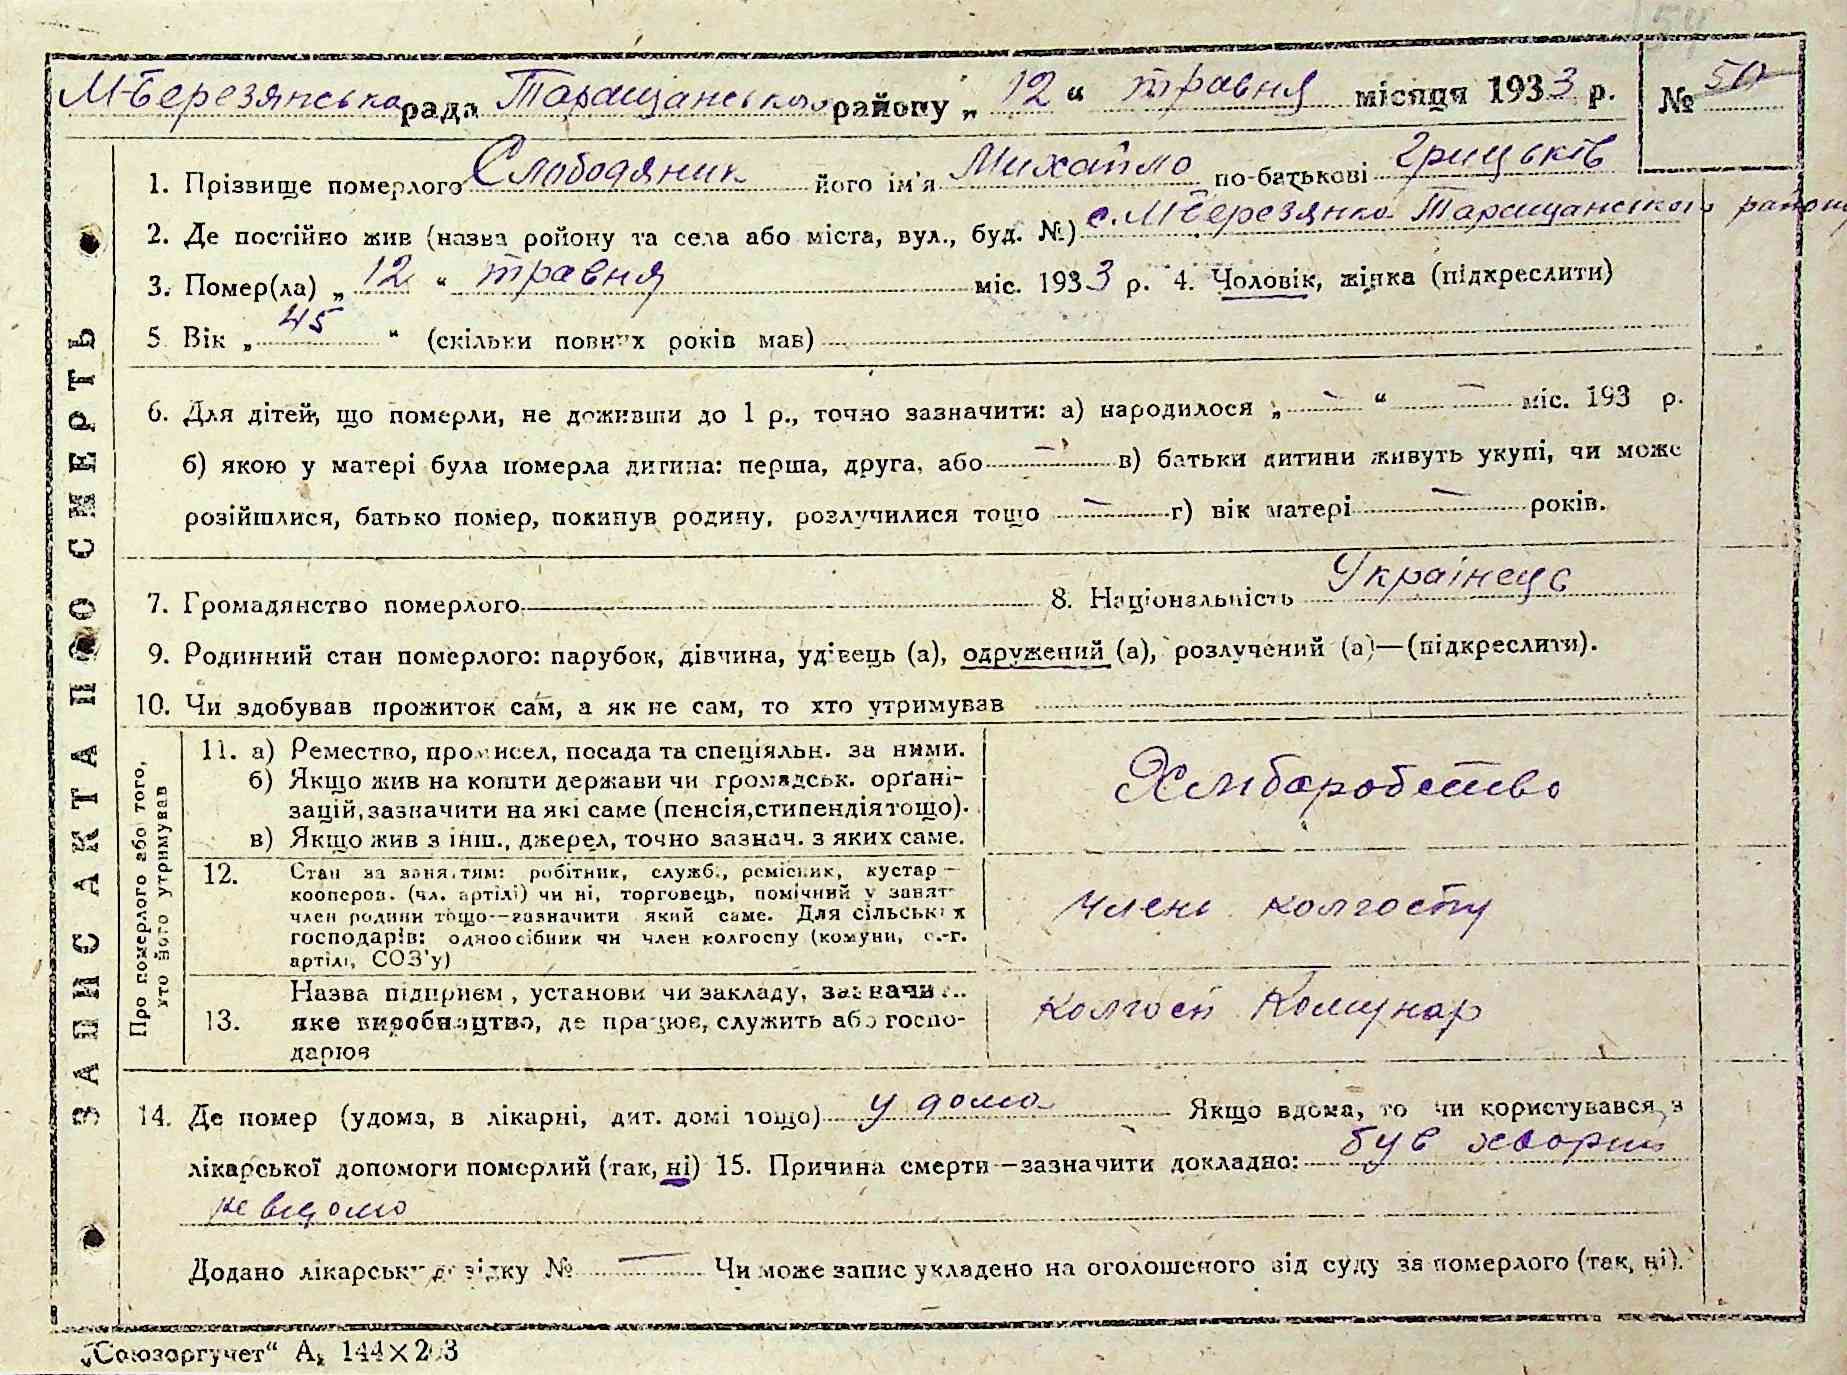 М-Березянська рада Таращанського району „ 12 “ травня місяця 1933 р. № 50
ЗАПИС АКТА ПРО СМЕРТЬ
1. Прізвище померлого Слободяник його ім'я Михайло по-батькові Грицьків
2. Де постійно жив (назва ройону та села або міста, вул., буд. №) с. М Березянка Таращанського району
3. Помер(ла) „ 12 “ травня міс. 1933 р. 4. Чоловік, жінка (підкреслити)
5 Вік „ 45 “ (скільки повних років мав)
6. Для дітей, що померли, не доживши до 1 р., точно зазначити: а) народилося „ — “ — міс. 193 р.
б) якою у матері була померла дитина: перша, друга, або — в) батьки дитини живуть укупі, чи може
розійшлися, батько помер, покинув родину, розлучилися тощо — г) вік матері — років.
7. Громадянство померлого 8. Національність Українець
9. Родинний стан померлого: парубок, дівчина, удівець (а), одружений (а), розлучений (а)—(підкреслити).
10. Чи здобував прожиток сам, а як не сам, то хто утримував
Про померлого або того,
хто його утримував
11. а) Ремество, промисел, посада та спеціяльн. за ними.
б) Якщо жив на кошти держави чи громадськ. орґані-
зацій, зазначити на які саме (пенсія, стипендія тощо).
в) Якщо жив з інш., джерел, точно зазнач. з яких саме.
Хліборобство
12. Стан за занятям: робітник, служб., ремісник, кустар —
кооперов. (чл. артілі) чи ні, торговець, помічний у занят
член родини тощо—зазначити який саме. Для сільських
господарів: одноосібник чи член колгоспу (комуни, с.-г.
артілі, СОЗ'у)
член колгоспу
13. Назва підприєм, установи чи закладу, зазначи...
яке виробництво, де працює, служить або госпо-
дарює
Колгосп Комунар
14. Де помер (удома, в лікарні, дит. домі тощо) у дома Якщо вдома, то чи користувався з
лікарської допомоги померлий (так, ні) 15. Причина смерти—зазначити докладно: був хворий
не відомо
Додано лікарську довідку № — Чи може запис укладено на оголошеного від суду за померлого (так, ні).
„Союзоргучет“ А₅ 144×203